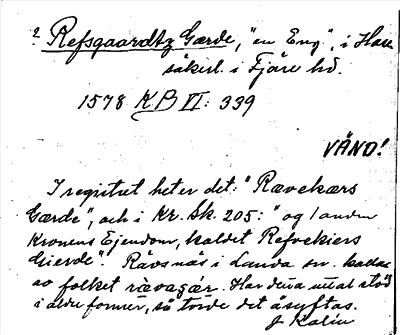 ? Refsgaardtz Gærde, "en Eng", i Han
säkerl. i Fjäre hd.
1578 KB VI: 339
VÄND!
I registret heter det: "Rævekærs
Gærde", och i Kr. Sk. 205: "og 1 anden
Kronens Ejendom, kaldet Refvekiers
Gierde". Rävsnäs i Landa sn. kallas
av folket rævagär. Har detta uttal stöd
i äldre former, så torde det åsyftas.
J. Kalén